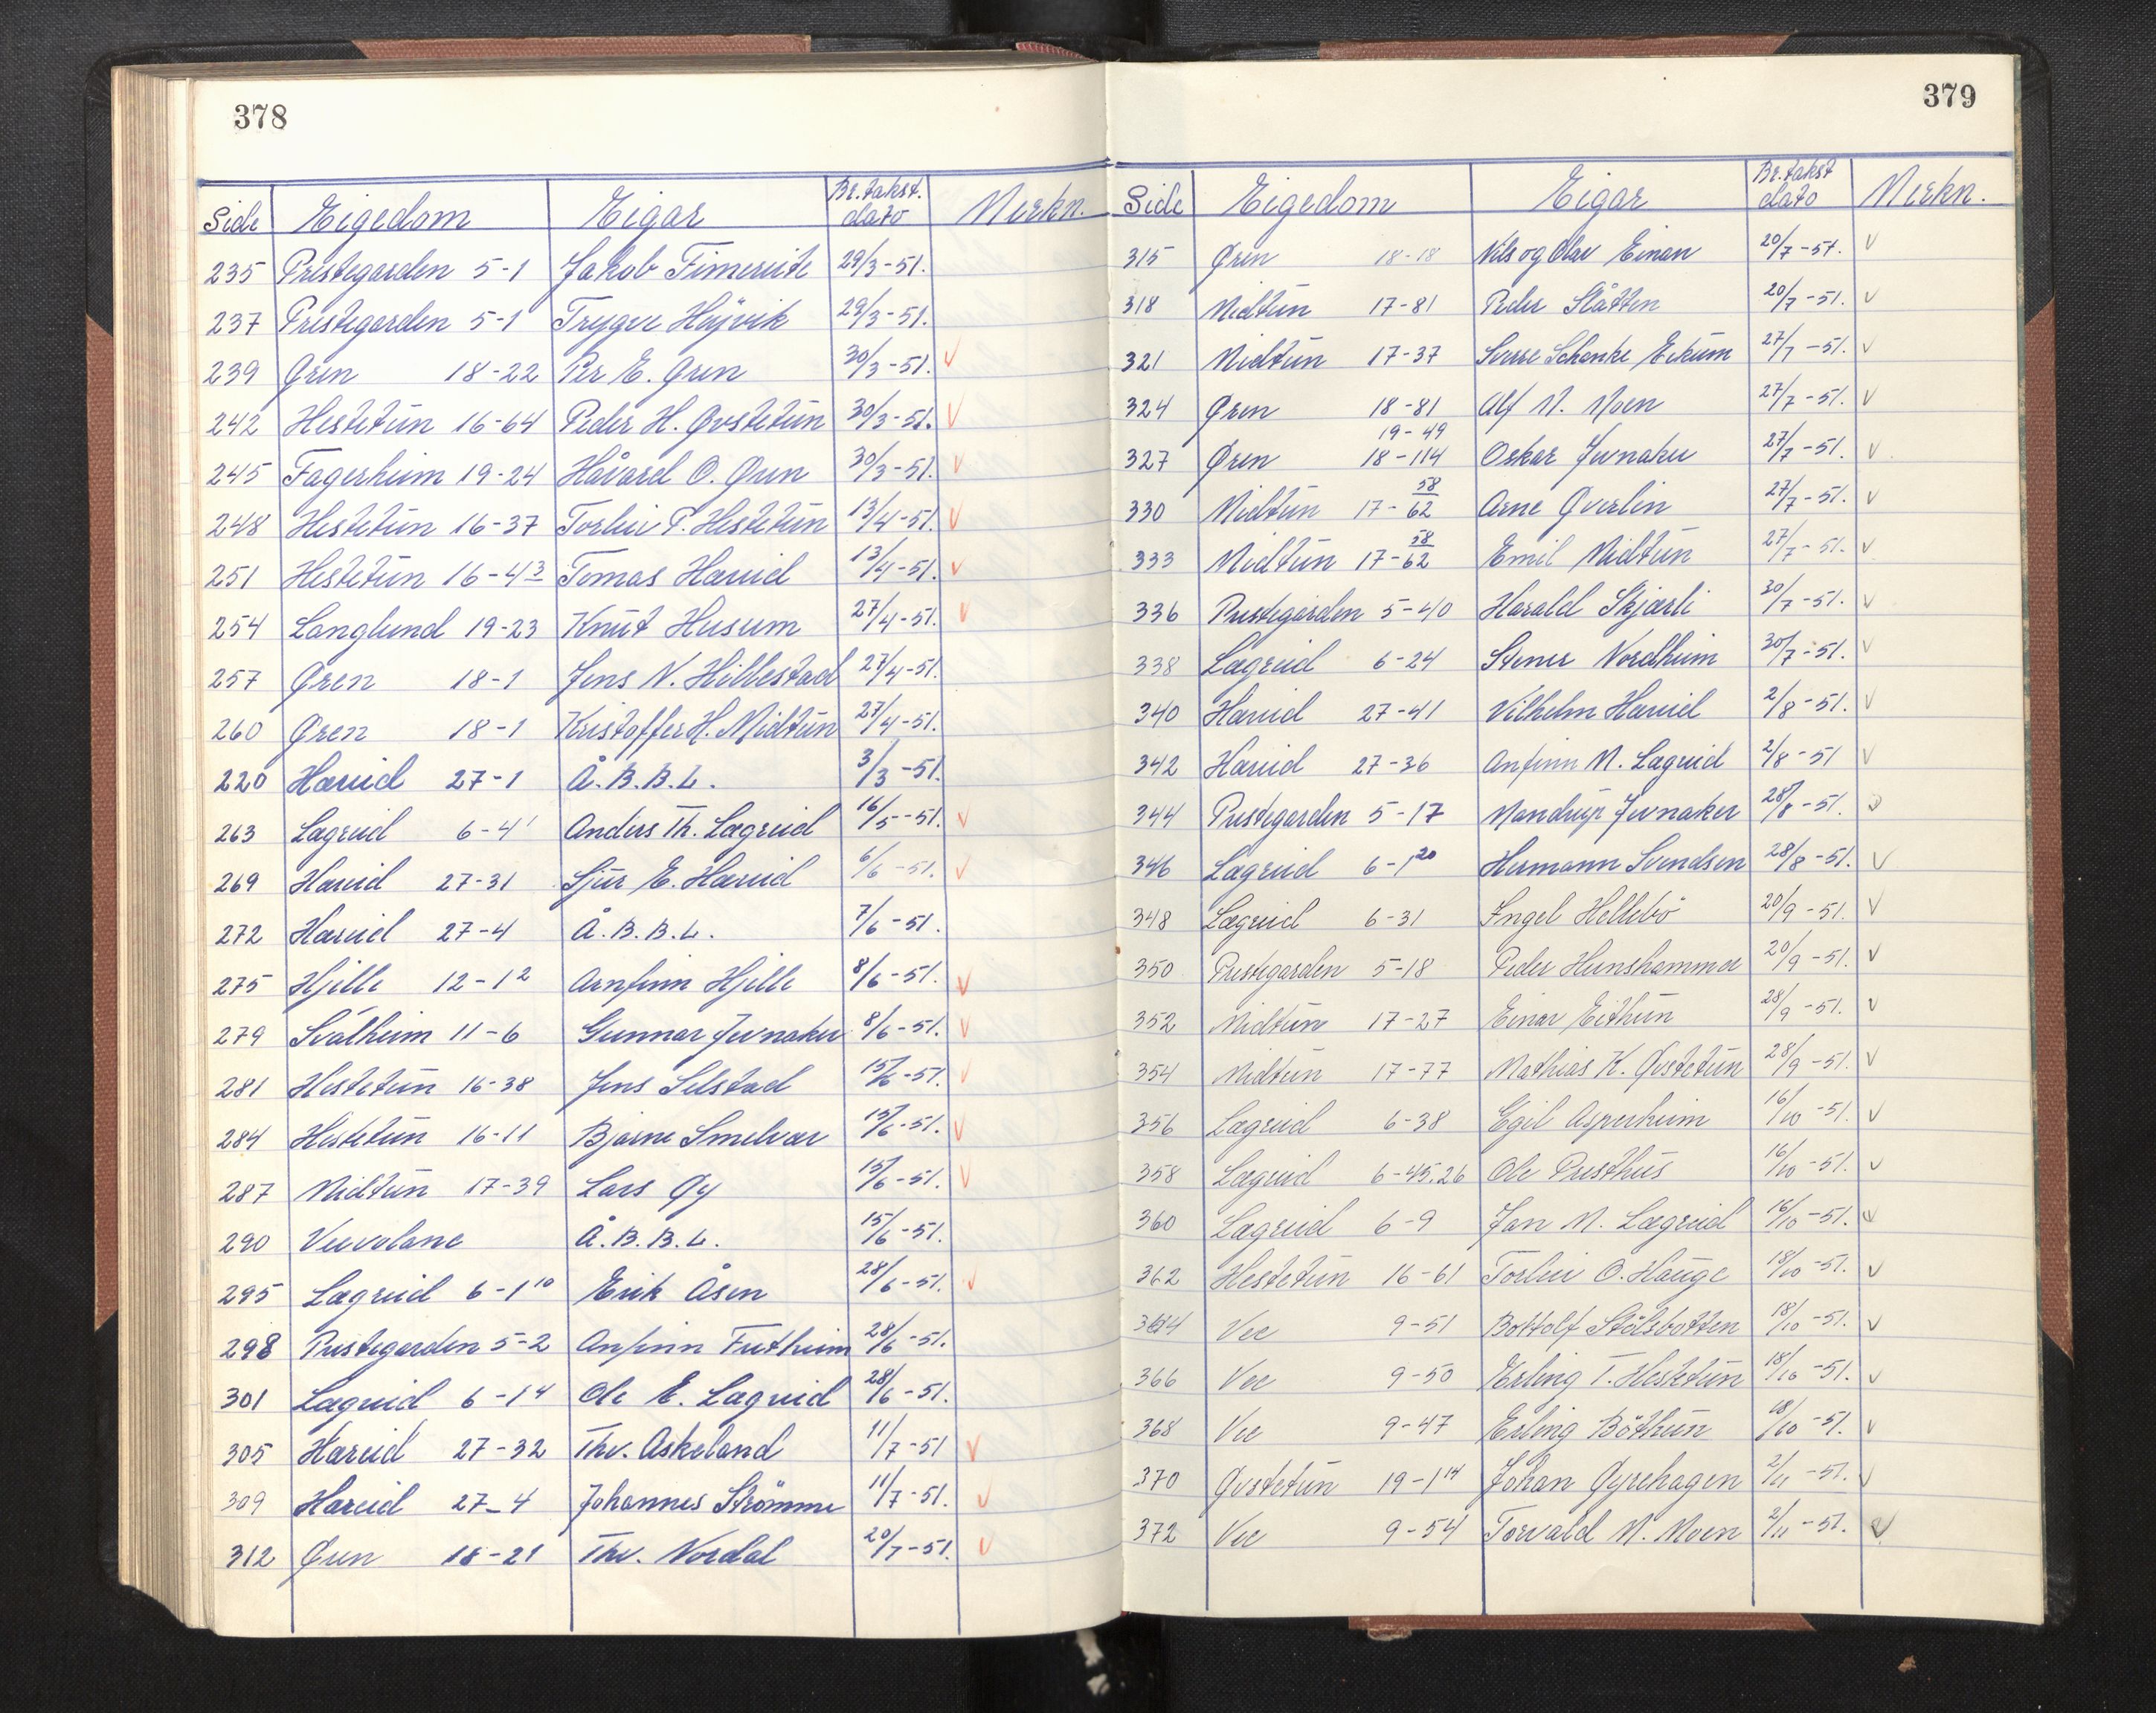 378
Side Eigedom Eigar Br.takst. dato Merkn.
235 Prestegarden 5-1 Jakob Timereite 29/3-51.
237 Prestegarden 5-1 Trygve Høyvik 29/3-51.
239 Øren 18-22 Per E. Øren 30/3-51. V
242 Hestetun 16-64 Peder H. Øvstetun 30/3-51. V
245 Fagerheim 19-24 Håvard O. Øren 30/3-51. V
248 Hestetun 16-37 Torleiv P. Hestetun 13/4-51. V
251 Hestetun 16-43 Tomas Hæreid 13/4-51. V
254 Langlund 19-23 Knut Husum 27/4-51. V
257 Øren 18-1 Jens N. Hillestad 27/4-51.
260 Øren 18-1 Kristoffer H. Midtun 27/4-51.
220 Hæreid 27-1 Å.B.B.L. 3/3-51.
263 Lægreid 6-4¹ Anders Th. Lægreid 16/5-51. V
269 Hæreid 27-31 Sjur E. Hæreid 6/6-51. V
272 Hæreid 27-4 Å.B.B.L. 7/6-51.
275 Hjelle 12-1² Arnfinn Hjelle 8/6-51. V
279 Svalheim 11-6 Gunnar Jevnaker 8/6-51. V
281 Hestetun 16-38 Jens Selstad 15/6-51. V
284 Hestetun 16-11 Bjarne Smelvær 15/6-51. V
287 Midtun 17-39 Lars Øy 15/6-51. V
290 Veevolane Å.B.B.L. 15/6-51.
295 Lægreid 6-1¹⁰ Erik Åsen 28/6-51. V
298 Prestegarden 5-2 Anfinn Fretheim 28/6-51.
301 Lægreid 6-1⁴ Ole E. Lægreid 28/6-51.
305 Hæreid 27-32 Thv. Askeland 11/7-51 V
309 Hæreid 27-4 Johannes Strömme 11/7-51. V
312 Øren 18-21 Thv. Nordal 20/7-51. V
379
Side Eigedom Eigar Br.takst dato Merkn.
315 Øren 18-18 Nils og Olav Einan 20/7-51. V
318 Midtun 17-81 Peder Slåtten 20/7-51. V
321 Midtun 17-37 Sverre Schanke Eikum 27/7-51. V
324 Øren 18-81 Alf N. Moen 27/7-51. V
19-49
327 Øren 18-114 Oskar Jevnaker 27/7-51. V
330 Midtun 17-58/62 Arne Qverlin 27/7-51. V
333 Midtun 17-58/62 Emil Midtun 27/7-51. V
336 Prestegarden 5-40 Harald Skjærli 30/7-51. V
338 Lægreid 6-24 Stener Nordheim 30/7-51. V
340 Hæreid 27-41 Vilhelm Hæreid 2/8-51. V
342 Hæreid 27-36 Anfinn M. Lægreid 2/8-51 V
344 Prestegarden 5-17 Mandrup Jevnaker 28/8-51. V
346 Lægreid 6-1²⁰ Hermann Svendsen 28/8-51. V
348 Lægreid 6-31 Ingel Hellebö 20/9-51. V
350 Prestegarden 5-18 Peder Hunshammer 20/9-51. V
352 Midtun 17-27 Einar Eithun 28/9-51. V
354 Midtun 17-77 Mathias K. Øvstetun 28/9-51. V
356 Lægreid 6-38 Egil Asperheim 16/10-51. V
358 Lægreid 6-45.26 Ole Presthus 16/10-51. V
360 Lægreid 6-9 Jan M. Lægreid 16/10-51. V
362 Hestetun 16-61 Torleiv O. Hauge 18/10-51. V
364 Vee 9-51 Bottolf Stölsbotten 18/10-51. V
366 Vee 9-50 Erling T. Hestetun 18/10-51. V
368 Vee 9-47 Erling Böthun 18/10-51. V
370 Øvstetun 19-1¹⁴ Johan Øyrehagen 2/11-51. V
372 Vee 9-54 Torvald M. Moen 2/11-51. V